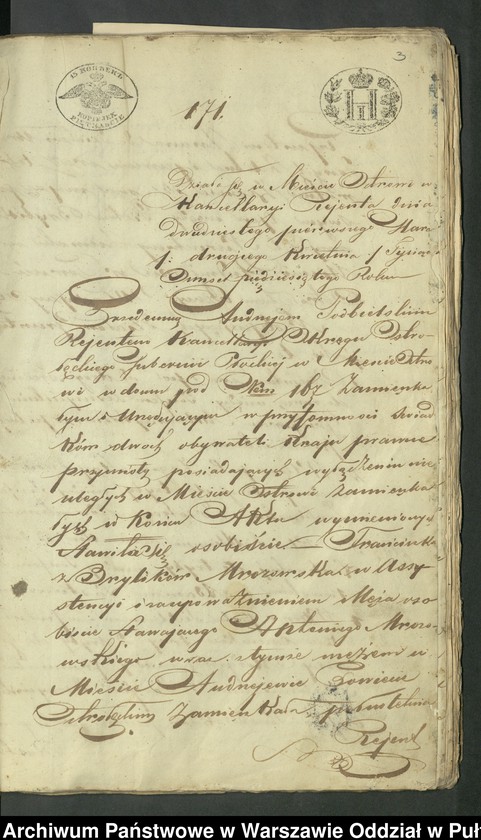 3
15 KOPIEJEK
KOPIEJEK PIĘTNAŚCIE
171.
Działo się w Mieście Ostrowi w
Kancellaryi Rejenta dnia
dwudziestego pierwszego Marca
/: drugiego Kwietnia :/ Tysiąc
Ośmset pięćdziesiątego Roku
Przedemną Andrzejem Podbielskim
Rejentem Kancellaryi Okręgu Ostro
łęckiego Gubernii Płockiej w Mieście Ostro
wi w domu pod Nrem 167 zamieszka
łym i Urzędującym w przytomności Świad
ków dwóch obywateli Kraju prawne
przymioty posiadających wyłączeniu nie
uległych w Mieście Ostrowi zamieszka
łych w końcu Aktu wymienionych
Stawiła się osobiście. — Franciszka
z Brylików Mrozowska w Assy
stencyi i zaupoważnieniem Męża oso
biście stawającego Antoniego Mrozo
wskiego wraz z tymże mężem w
Mieście Andrzejewie Powiecie
Ostrołęckim zamieszkała
Rejent
Archiwum Państwowe w Warszawie Oddział w Puł